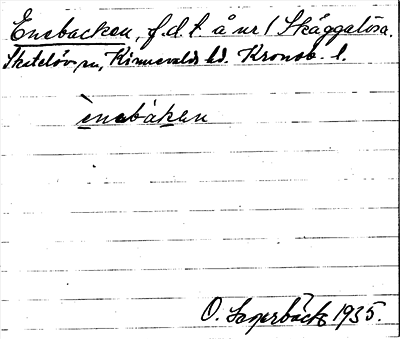 Enebacken, f.d.t. å nr 1 Skäggalösa.
Skatelövs sn, Kinnevalds hd. Kronob. l.
ènebáken
O. Lagerbäck 1935.